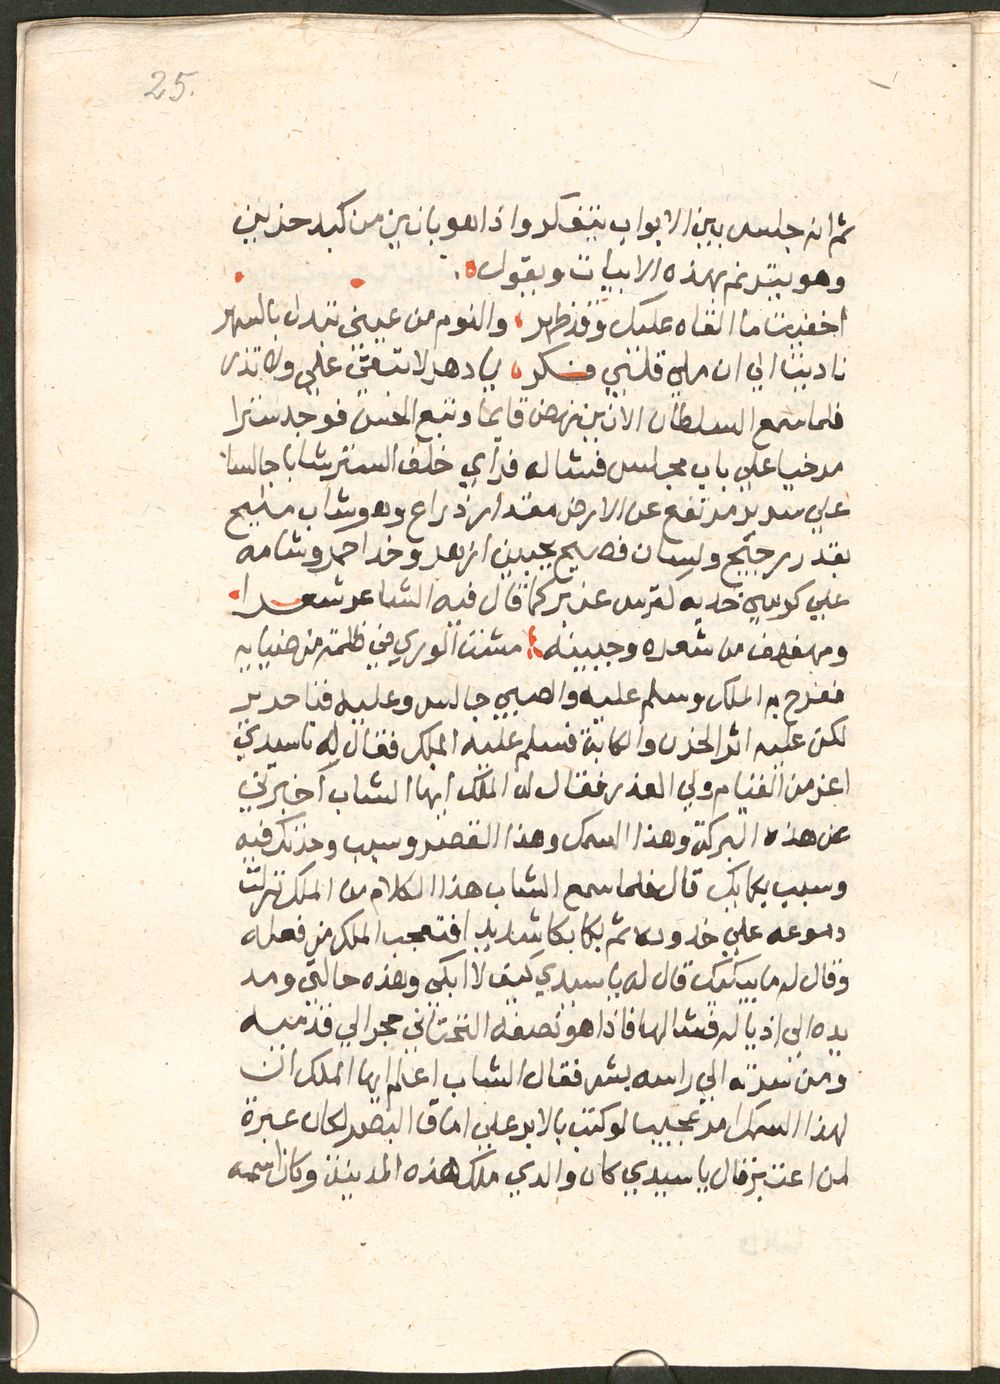 25.
ثم انه جلس بين الابواب يتفكر واذا هو بانين من كبد حزين
وهو يترنم بهذه الابيات ويقول
اخفيت ما القاه عليك وقد ظهر والنوم من عيني تبدل بالسهر
ناديت الي ان ملي قلبي فكر يا دهر لا تبقي علي ولا تذر
فلما سمع السلطان الانين نهض قايما وتبع الحس فوجد سترا
مرخيا علي باب مجلس فشاله فراي خلف الستر شابا جالسا
علي سرير مرتفع عن الارض مقدار ذراع وهو شاب مليح
بقد رجيح ولسان فصيح بجبين ازهر وخد احمر وشامه
علي كرسي خديه كترس عنبر كما قال فيه الشاعر شعرا
ومهفهف من شعره وجبينه مشت الوري في ظلمة من ضيايه
ففرح به الملك وسلم عليه والصبي جالس وعليه قبا حرير
لكن عليه اثر الحزن والكابة فسلم عليه الملك فقال له يا سيدي
اعز من القيام ولي العذر فقال له الملك ايها الشاب اخبرني
عن هذه البركة وهذا السمك وهذا القصر وسبب وحدتك فيه
وسبب بكايك قال فلما سمع الشاب هذا الكلام من الملك نزلت
دموعه علي خدوده ثم بكا بكا شديدا فتعجب الملك من فعله
وقال له ما يبكيك قال له يا سيدي كيف لا ابكي وهذه حالتي ومد
يده الي اذياله فشالها فاذا هو نصفه التحتاني حجر الي قدميه
ومن سرته الي راسه بشر فقال الشاب اعلم ايها الملك ان
لهذا السمك امر عجيب لو كتب بالابر علي اماق البصر لكان عبرة
لمن اعتبر قال يا سيدي كان والدي ملك هذه المدينة وكان اسمه